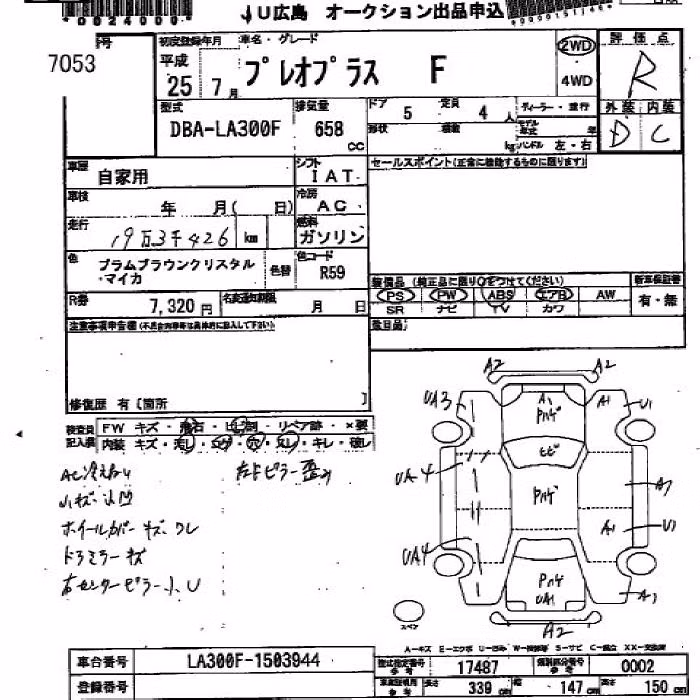 *0024000*
JU広島 オークション出品申込
7053
初度登録年月 車名・グレード 2WD 評価点
平成 25 7月 プレオプラス F 4WD R
型式 排気量 ドア 5 定員 4人 ディーラー・並行 外装 内装
DBA-LA300F 658 cc 形状 積載 kg モデル年式 年 ハンドル 左・右 D C
車歴 自家用 シフト IAT セールスポイント(正常に機能するものに限ります)
車検 年 月( 日) 冷房 AC
走行 19万3千426 km 燃料 ガソリン
色 プラムブラウンクリスタル・マイカ 色替 色コード R59
装備品 (純正品に限り○をつけてください) 新車保証書
PS PW ABS エアB AW 有・無
SR ナビ TV カワ
R券 7,320円 名変期限 月 日
注意事項申告欄(不具合内容等は具体的に記入して下さい)
修復歴 有 [箇所 ]
検査員記入欄 FW キズ・飛石・ヒビ割・リペア跡・×要
内装 キズ・汚し・コゲ・穴・スレ・キレ・破し
AC冷えない 左Fピラー歪み
小キズ・凹
ホイールカバー キズ ワレ
ドアミラー キズ
右センターピラー小U
A2 A2
UA3 A1 ハゲ A1 U1
ヒビ
UA4 ハゲ A1
UA4 A1 U1
ハゲ UA1 A1
A2
スペア
A-キズ E-エクボ U-凹み W-補修等 S-サビ C-腐食 XX-交換済
車台番号 LA300F-1503944 型式指定番号 参考 17487 類別区分番号 参考 0002
登録番号 長さ 339cm 幅 147cm 高さ 150cm